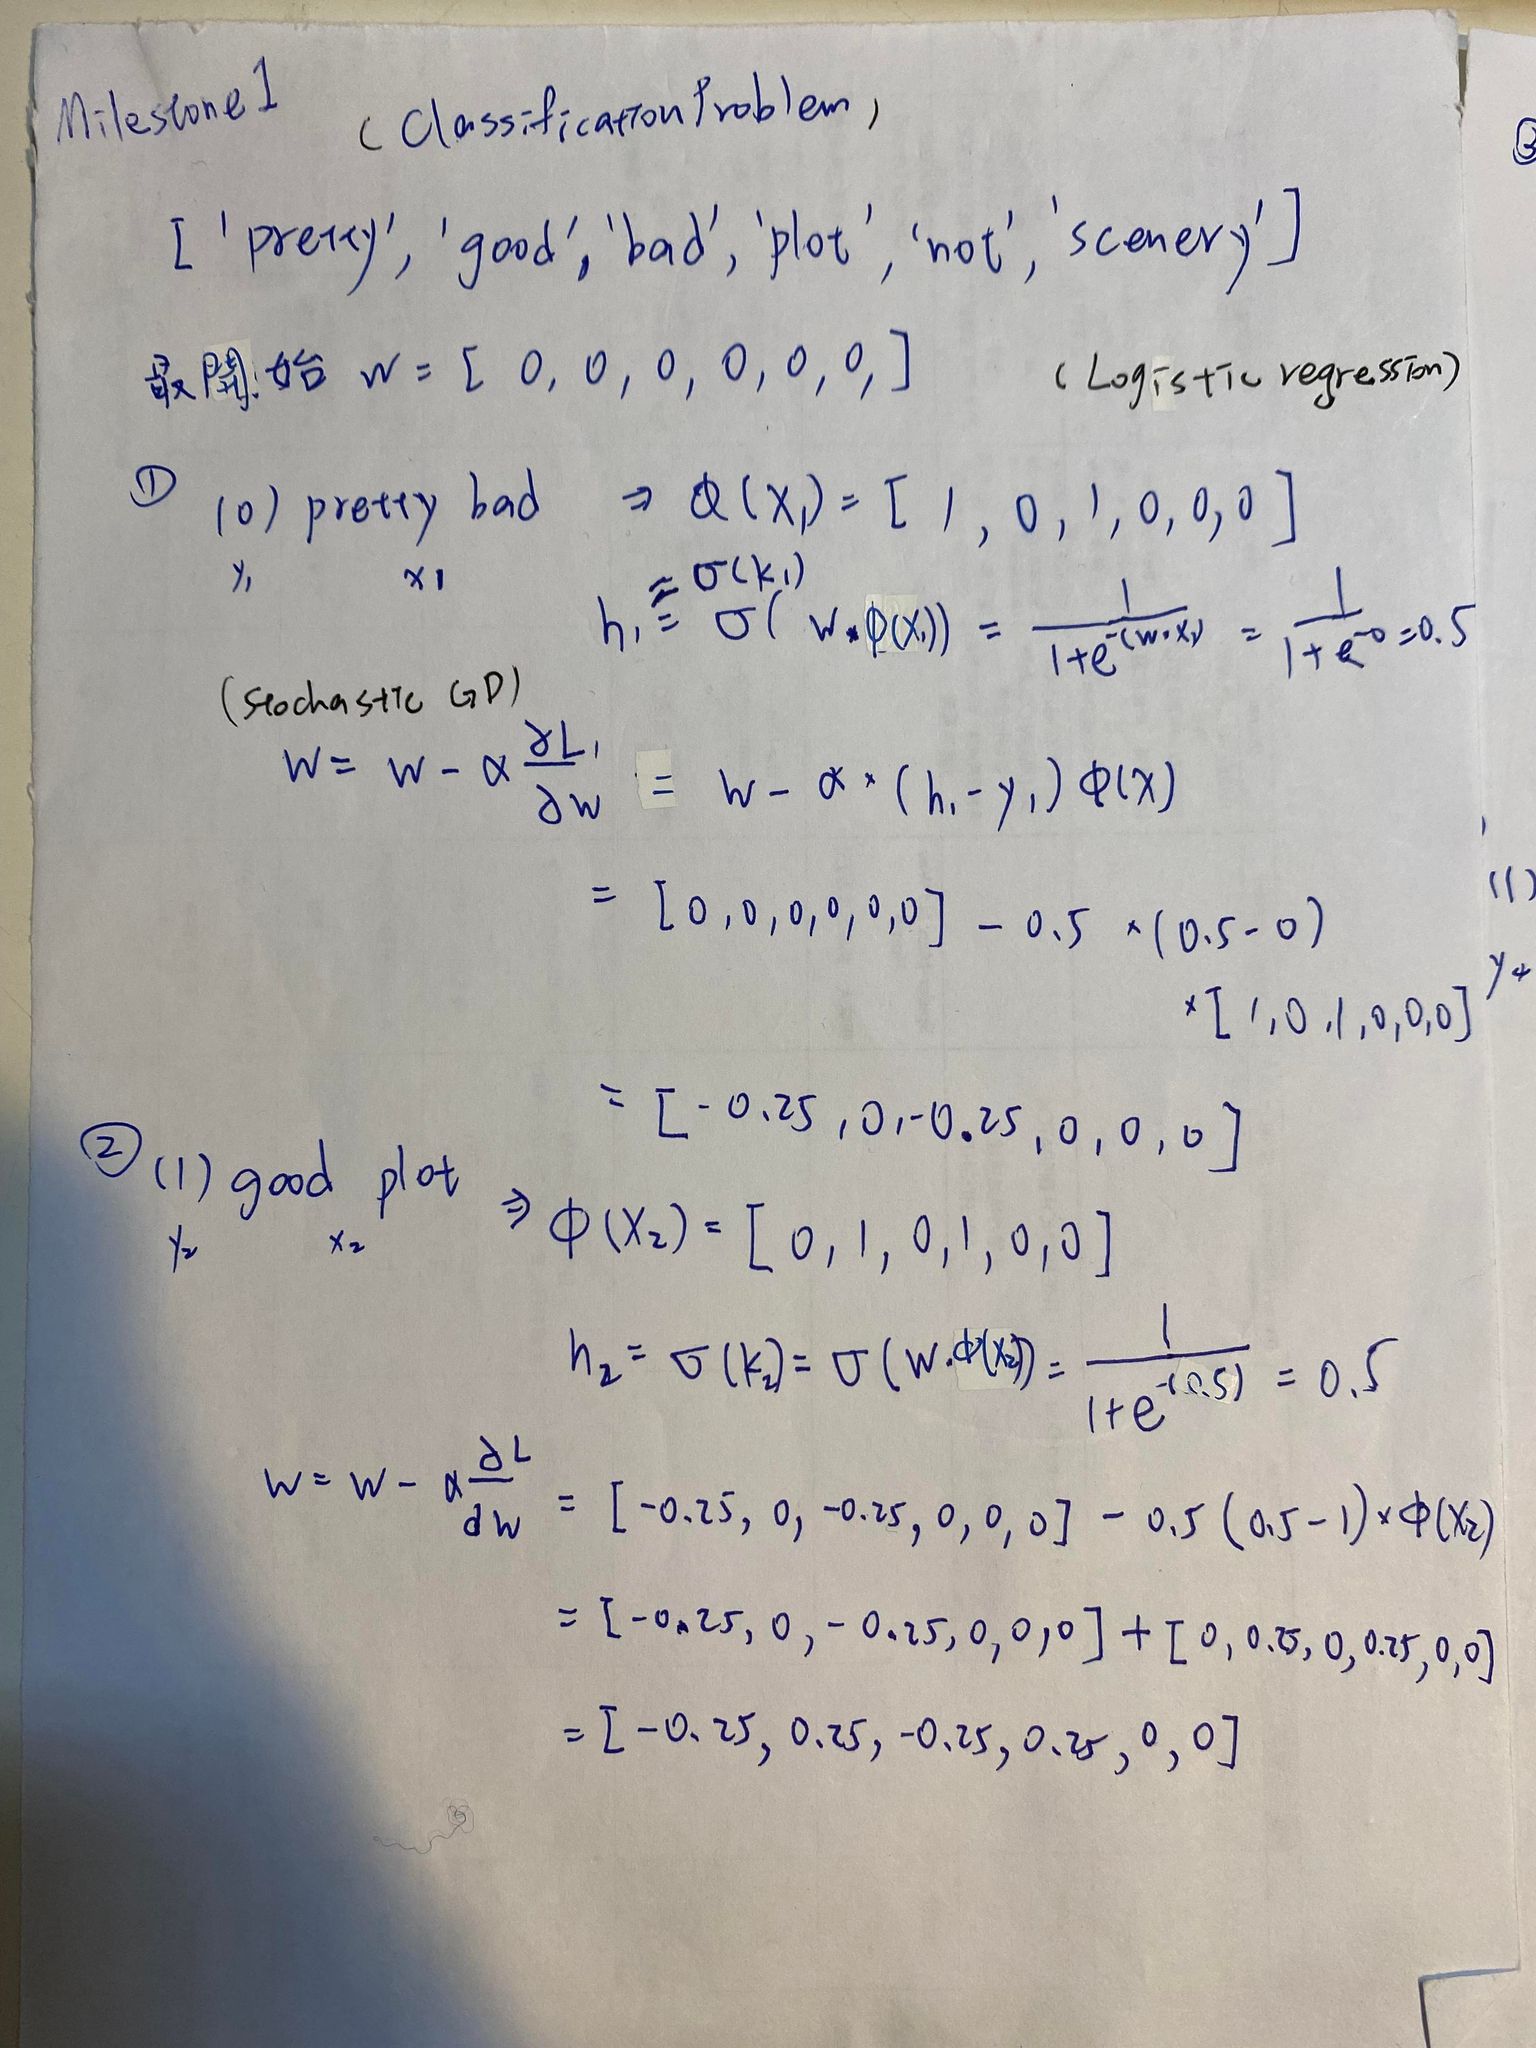 Milestone 1 (Classification Problem)
['pretty', 'good', 'bad', 'plot', 'not', 'scenery']
最開始 W = [0, 0, 0, 0, 0, 0,] (Logistic regression)
① (0) pretty bad ⇒ Φ(X₁) = [1, 0, 1, 0, 0, 0]
y₁ x₁
= σ(k₁)
h₁ = σ(W·Φ(X₁)) = 1/(1+e^-(W·X₁)) = 1/(1+e^-0) = 0.5
(Stochastic GD)
W = W - α ∂L₁/∂W = W - α × (h₁ - y₁) Φ(X)
= [0, 0, 0, 0, 0, 0] - 0.5 × (0.5 - 0)
× [1, 0, 1, 0, 0, 0]
= [-0.25, 0, -0.25, 0, 0, 0]
② (1) good plot ⇒ Φ(X₂) = [0, 1, 0, 1, 0, 0]
y₂ x₂
h₂ = σ(k₂) = σ(W·Φ(X₂)) = 1/(1+e^-(0.5)) = 0.5
W = W - α ∂L/∂W = [-0.25, 0, -0.25, 0, 0, 0] - 0.5 (0.5 - 1) × Φ(X₂)
= [-0.25, 0, -0.25, 0, 0, 0] + [0, 0.25, 0, 0.25, 0, 0]
= [-0.25, 0.25, -0.25, 0.25, 0, 0]
③
(1)
y₄